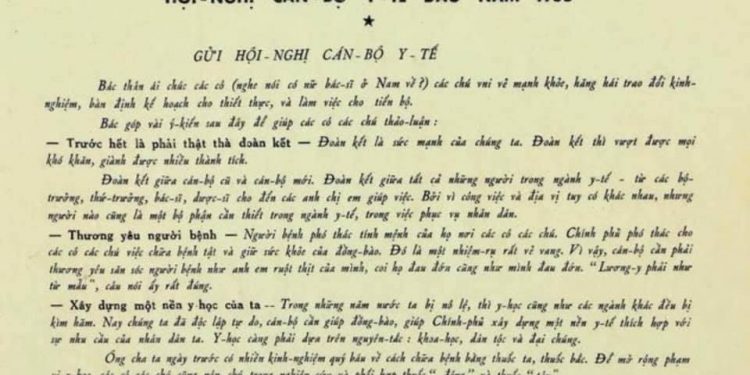 HỘI-NGHỊ CÁN-BỘ Y-TẾ ĐẦU NĂM
GỬI HỘI-NGHỊ CÁN-BỘ Y-TẾ
Bác thân ái chúc các cô (nghe nói có nữ bác-sĩ ở Nam về?) các chú vui vẻ mạnh khỏe, hăng hái trao đổi kinh-
nghiệm, bàn định kế hoạch cho thiết thực, và làm việc cho tiến bộ.
Bác góp vài ý-kiến sau đây để giúp các cô các chú thảo-luận :
— Trước hết là phải thật thà đoàn kết — Đoàn kết là sức mạnh của chúng ta. Đoàn kết thì vượt được mọi
khó khăn, giành được nhiều thành tích.
Đoàn kết giữa cán-bộ cũ và cán-bộ mới. Đoàn kết giữa tất cả những người trong ngành y-tế - từ các bộ-
trưởng, thứ-trưởng, bác-sĩ, dược-sĩ cho đến các anh chị em giúp việc. Bởi vì công việc và địa vị tuy có khác nhau, nhưng
người nào cũng là một bộ phận cần thiết trong ngành y-tế, trong việc phục vụ nhân dân.
— Thương yêu người bệnh — Người bệnh phó thác tính mệnh của họ nơi các cô các chú. Chính phủ phó thác cho
các cô các chú việc chữa bệnh tật và giữ sức khỏe của đồng-bào. Đó là một nhiệm-vụ rất vẻ vang. Vì vậy, cán-bộ cần phải
thương yêu săn sóc người bệnh như anh em ruột thịt của mình, coi họ đau đớn cũng như mình đau đớn. “Lương-y phải như
từ mẫu”, câu nói ấy rất đúng.
— Xây dựng một nền y-học của ta — Trong những năm nước ta bị nô lệ, thì y-học cũng như các ngành khác đều bị
kìm hãm. Nay chúng ta đã độc lập tự do, cán-bộ cần giúp đồng-bào, giúp Chính-phủ xây dựng một nền y-tế thích hợp với
sự nhu cầu của nhân dân ta. Y-học càng phải dựa trên nguyên-tắc : khoa-học, dân tộc và đại chúng.
Ông cha ta ngày trước có nhiều kinh-nghiệm quý báu về cách chữa bệnh bằng thuốc ta, thuốc bắc. Để mở rộng phạm